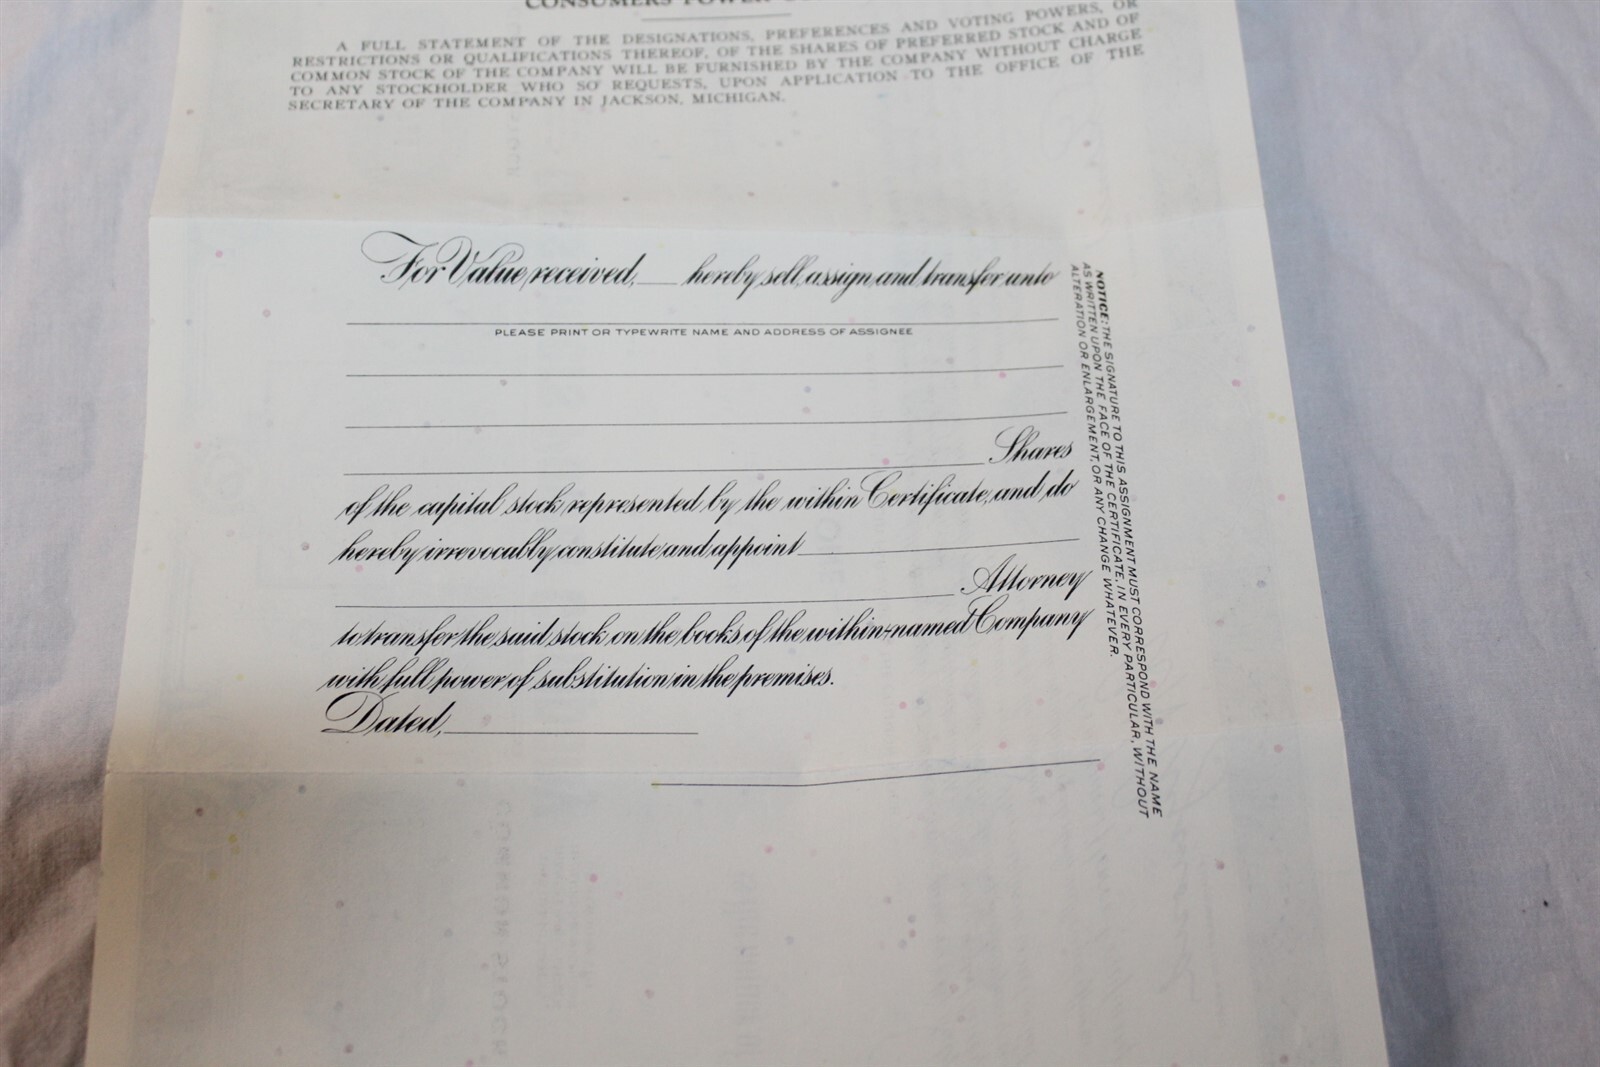 CONSUMERS POWER
A FULL STATEMENT OF THE DESIGNATIONS, PREFERENCES AND VOTING POWERS, OR
RESTRICTIONS OR QUALIFICATIONS THEREOF, OF THE SHARES OF PREFERRED STOCK AND OF
COMMON STOCK OF THE COMPANY WILL BE FURNISHED BY THE COMPANY WITHOUT CHARGE
TO ANY STOCKHOLDER WHO SO REQUESTS, UPON APPLICATION TO THE OFFICE OF THE
SECRETARY OF THE COMPANY IN JACKSON, MICHIGAN.
For Value received, ___ hereby sell, assign and transfer unto
PLEASE PRINT OR TYPEWRITE NAME AND ADDRESS OF ASSIGNEE
Shares
of the capital stock represented by the within Certificate, and do
hereby irrevocably constitute and appoint
Attorney
to transfer the said stock on the books of the within-named Company
with full power of substitution in the premises.
Dated,
NOTICE: THE SIGNATURE TO THIS ASSIGNMENT MUST CORRESPOND WITH THE NAME
AS WRITTEN UPON THE FACE OF THE CERTIFICATE, IN EVERY PARTICULAR, WITHOUT
ALTERATION OR ENLARGEMENT, OR ANY CHANGE WHATEVER.
COMMON STOCK